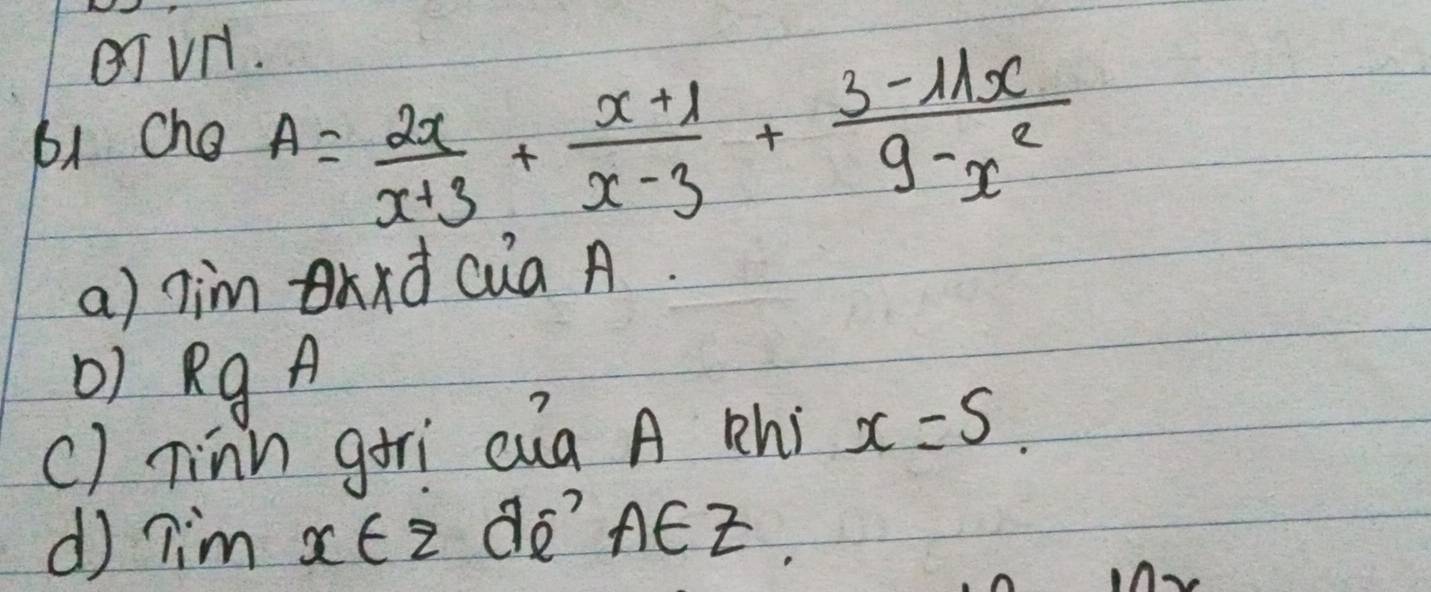 BTVN.
b1 Cho A = \frac{2x}{x+3} + \frac{x+1}{x-3} + \frac{3-11x}{9-x^2}
a) Tìm Đkxđ của A.
b) Rg A
c) Tính gtri của A khi x = 5.
d) Tìm x ∈ Z để A ∈ Z.